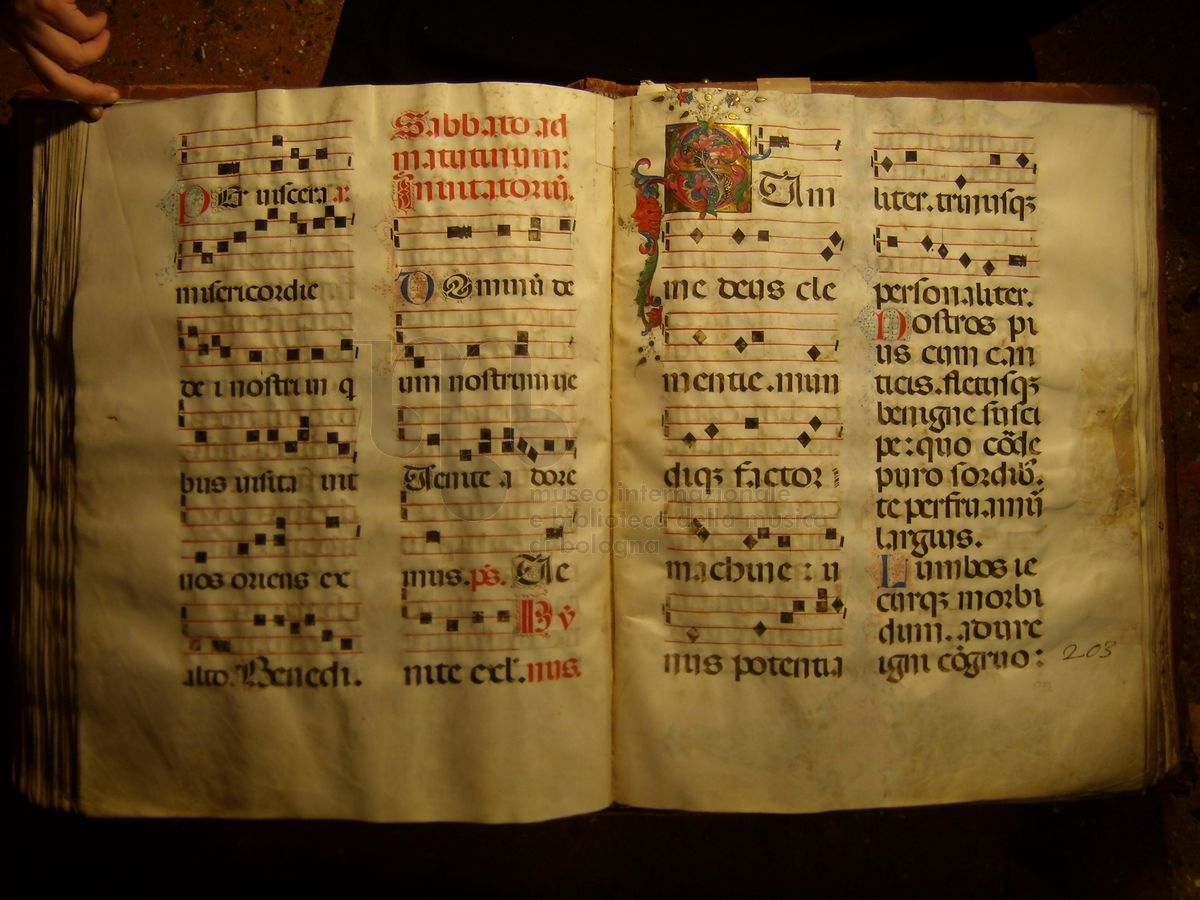 PEr viscera a.
misericordie
dei nostri in q̄
bus visita vit
nos oriens ex
alto. Benedi.
Sabbato ad
matutinum:
Inuitatoriū.
DOminū de
um nostrum ue
Venite adore
mus. ps. Ve
hymnus.
nite exl.
SUm
me deus cle
mentie. mun
diqz factor
machine: u
nus potentia
liter. trinusqz
personaliter.
Nostros pi
us cum can
ticis. fletusqz
benigne susci
pe: quo cōde
puro sordib.
te perfruamū
largius.
Lumbos ie
curqz morbi
dum. adure
igni cōgruo:
203
museo internazionale
e biblioteca della musica
di bologna